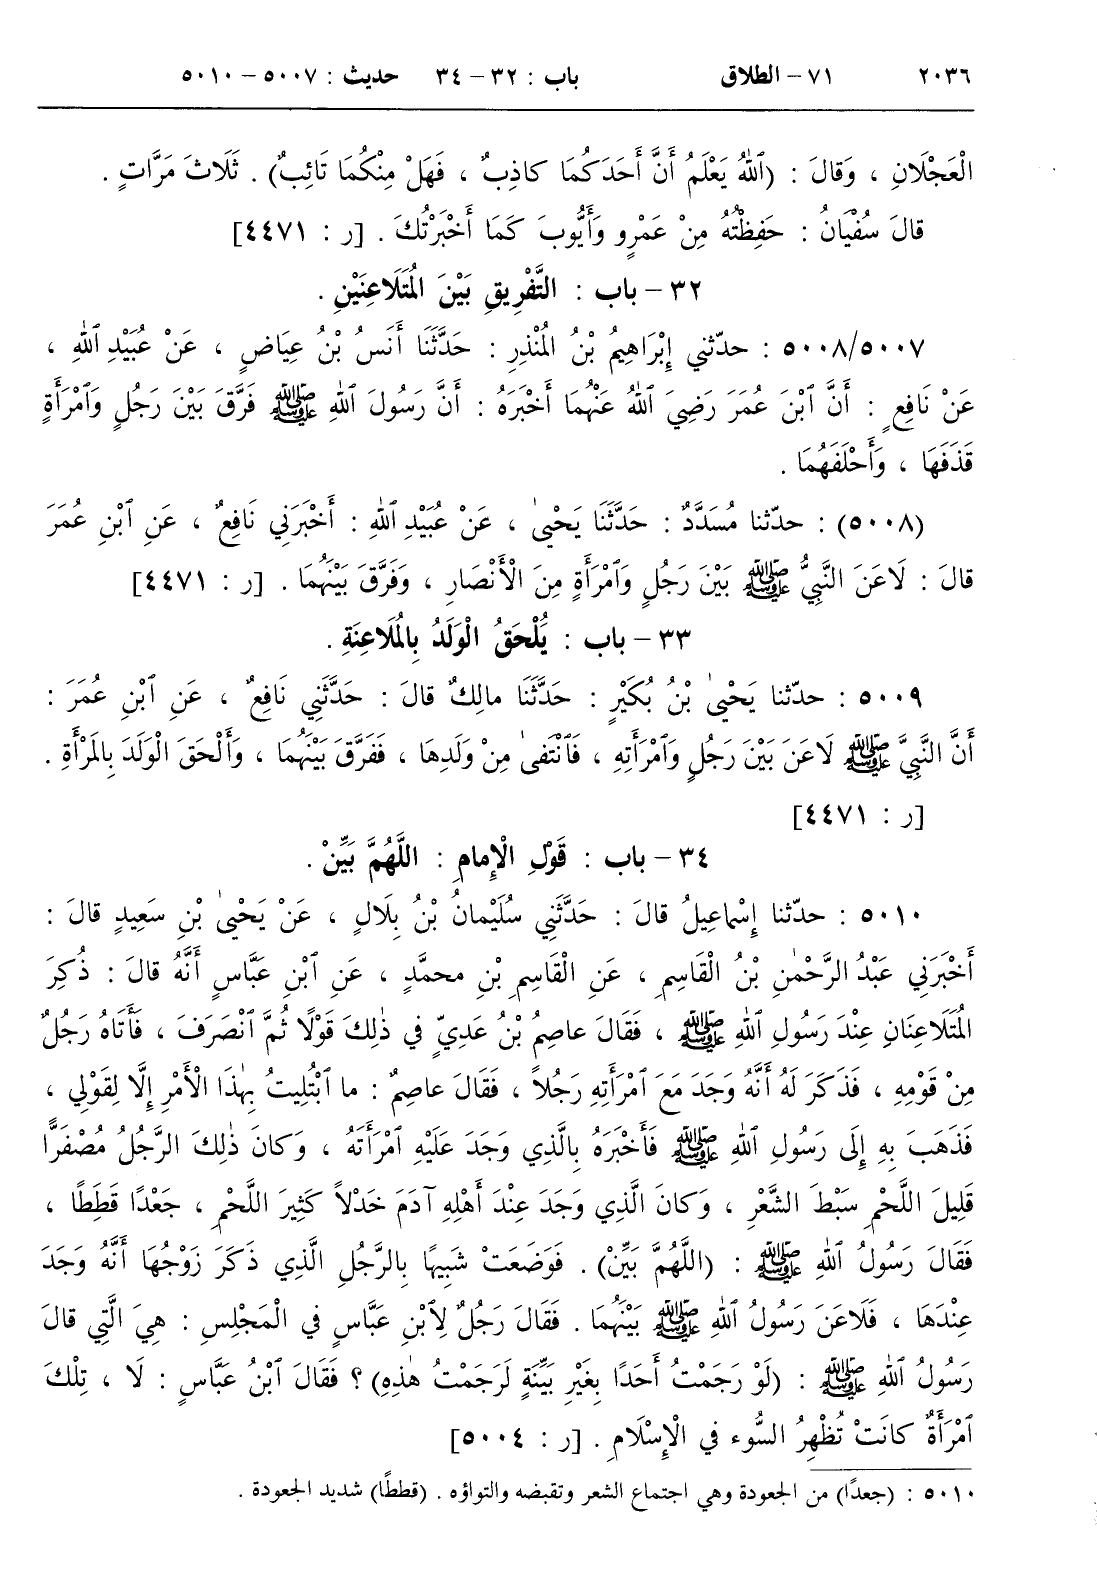 ٢٠٣٦ ٧١ - الطلاق باب : ٣٢ - ٣٤ حديث : ٥٠٠٧ - ٥٠١٠
الْعَجْلَانِ ، وَقالَ : (ٱللهُ يَعْلَمُ أَنَّ أَحَدَكُمَا كاذِبٌ ، فَهَلْ مِنْكُمَا تَائِبٌ) . ثَلَاثَ مَرَّاتٍ .
قالَ سُفْيَانُ : حَفِظْتُهُ مِنْ عَمْرٍو وَأَيُّوبَ كَمَا أَخْبَرْتُكَ . [ر : ٤٤٧١]
٣٢ - باب : التَّفْرِيقِ بَيْنَ الْمُتَلَاعِنَيْنِ .
٥٠٠٨/٥٠٠٧ : حدّثني إِبْرَاهِيمُ بْنُ الْمُنْذِرِ : حَدَّثَنَا أَنَسُ بْنُ عِيَاضٍ ، عَنْ عُبَيْدِ ٱللهِ ،
عَنْ نَافِعٍ : أَنَّ ٱبْنَ عُمَرَ رَضِيَ ٱللهُ عَنْهُمَا أَخْبَرَهُ : أَنَّ رَسُولَ ٱللهِ ﷺ فَرَّقَ بَيْنَ رَجُلٍ وَٱمْرَأَةٍ
قَذَفَهَا ، وَأَحْلَفَهُمَا .
(٥٠٠٨) : حدّثنا مُسَدَّدٌ : حَدَّثَنَا يَحْيىٰ ، عَنْ عُبَيْدِ ٱللهِ : أَخْبَرَنِي نَافِعٌ ، عَنِ ٱبْنِ عُمَرَ
قالَ : لَاعَنَ النَّبِيُّ ﷺ بَيْنَ رَجُلٍ وَٱمْرَأَةٍ مِنَ الْأَنْصَارِ ، وَفَرَّقَ بَيْنَهُمَا . [ر : ٤٤٧١]
٣٣ - باب : يَلْحَقُ الْوَلَدُ بِالْمُلَاعِنَةِ .
٥٠٠٩ : حدّثنا يَحْيىٰ بْنُ بُكَيْرٍ : حَدَّثَنَا مالِكٌ قالَ : حَدَّثَنِي نَافِعٌ ، عَنِ ٱبْنِ عُمَرَ :
أَنَّ النَّبِيَّ ﷺ لَاعَنَ بَيْنَ رَجُلٍ وَٱمْرَأَتِهِ ، فَٱنْتَفىٰ مِنْ وَلَدِهَا ، فَفَرَّقَ بَيْنَهُمَا ، وَأَلْحَقَ الْوَلَدَ بِالْمَرْأَةِ .
[ر : ٤٤٧١]
٣٤ - باب : قَوْلِ الْإِمامِ : اللَّهُمَّ بَيِّنْ .
٥٠١٠ : حدّثنا إِسْماعِيلُ قالَ : حَدَّثَنِي سُلَيْمانُ بْنُ بِلَالٍ ، عَنْ يَحْيىٰ بْنِ سَعِيدٍ قالَ :
أَخْبَرَنِي عَبْدُ الرَّحْمٰنِ بْنُ الْقَاسِمِ ، عَنِ الْقَاسِمِ بْنِ محمَّدٍ ، عَنِ ٱبْنِ عَبَّاسٍ أَنَّهُ قالَ : ذُكِرَ
الْمُتَلَاعِنَانِ عِنْدَ رَسُولِ ٱللهِ ﷺ ، فَقَالَ عاصِمُ بْنُ عَدِيٍّ في ذٰلِكَ قَوْلًا ثُمَّ ٱنْصَرَفَ ، فَأَتَاهُ رَجُلٌ
مِنْ قَوْمِهِ ، فَذَكَرَ لَهُ أَنَّهُ وَجَدَ مَعَ ٱمْرَأَتِهِ رَجُلاً ، فَقَالَ عاصِمٌ : ما ٱبْتُلِيتُ بِهٰذَا الْأَمْرِ إِلَّا لِقَوْلِي ،
فَذَهَبَ بِهِ إِلَى رَسُولِ ٱللهِ ﷺ فَأَخْبَرَهُ بِالَّذِي وَجَدَ عَلَيْهِ ٱمْرَأَتَهُ ، وَكانَ ذٰلِكَ الرَّجُلُ مُصْفَرًّا
قَلِيلَ اللَّحْمِ سَبْطَ الشَّعْرِ ، وَكانَ الَّذِي وَجَدَ عِنْدَ أَهْلِهِ آدَمَ خَدْلاً كَثِيرَ اللَّحْمِ ، جَعْدًا قَطَطًا ،
فَقَالَ رَسُولُ ٱللهِ ﷺ : (اللَّهُمَّ بَيِّنْ) . فَوَضَعَتْ شَبِيهًا بِالرَّجُلِ الَّذِي ذَكَرَ زَوْجُهَا أَنَّهُ وَجَدَ
عِنْدَهَا ، فَلَاعَنَ رَسُولُ ٱللهِ ﷺ بَيْنَهُمَا . فَقَالَ رَجُلٌ لِٱبْنِ عَبَّاسٍ في الْمَجْلِسِ : هِيَ الَّتِي قالَ
رَسُولُ ٱللهِ ﷺ : (لَوْ رَجَمْتُ أَحَدًا بِغَيْرِ بَيِّنَةٍ لَرَجَمْتُ هٰذِهِ) ؟ فَقَالَ ٱبْنُ عَبَّاسٍ : لَا ، تِلْكَ
ٱمْرَأَةٌ كانَتْ تُظْهِرُ السُّوءَ في الْإِسْلَامِ . [ر : ٥٠٠٤]
٥٠١٠ : (جعدًا) من الجعودة وهي اجتماع الشعر وتقبضه والتواؤه . (قططًا) شديد الجعودة .